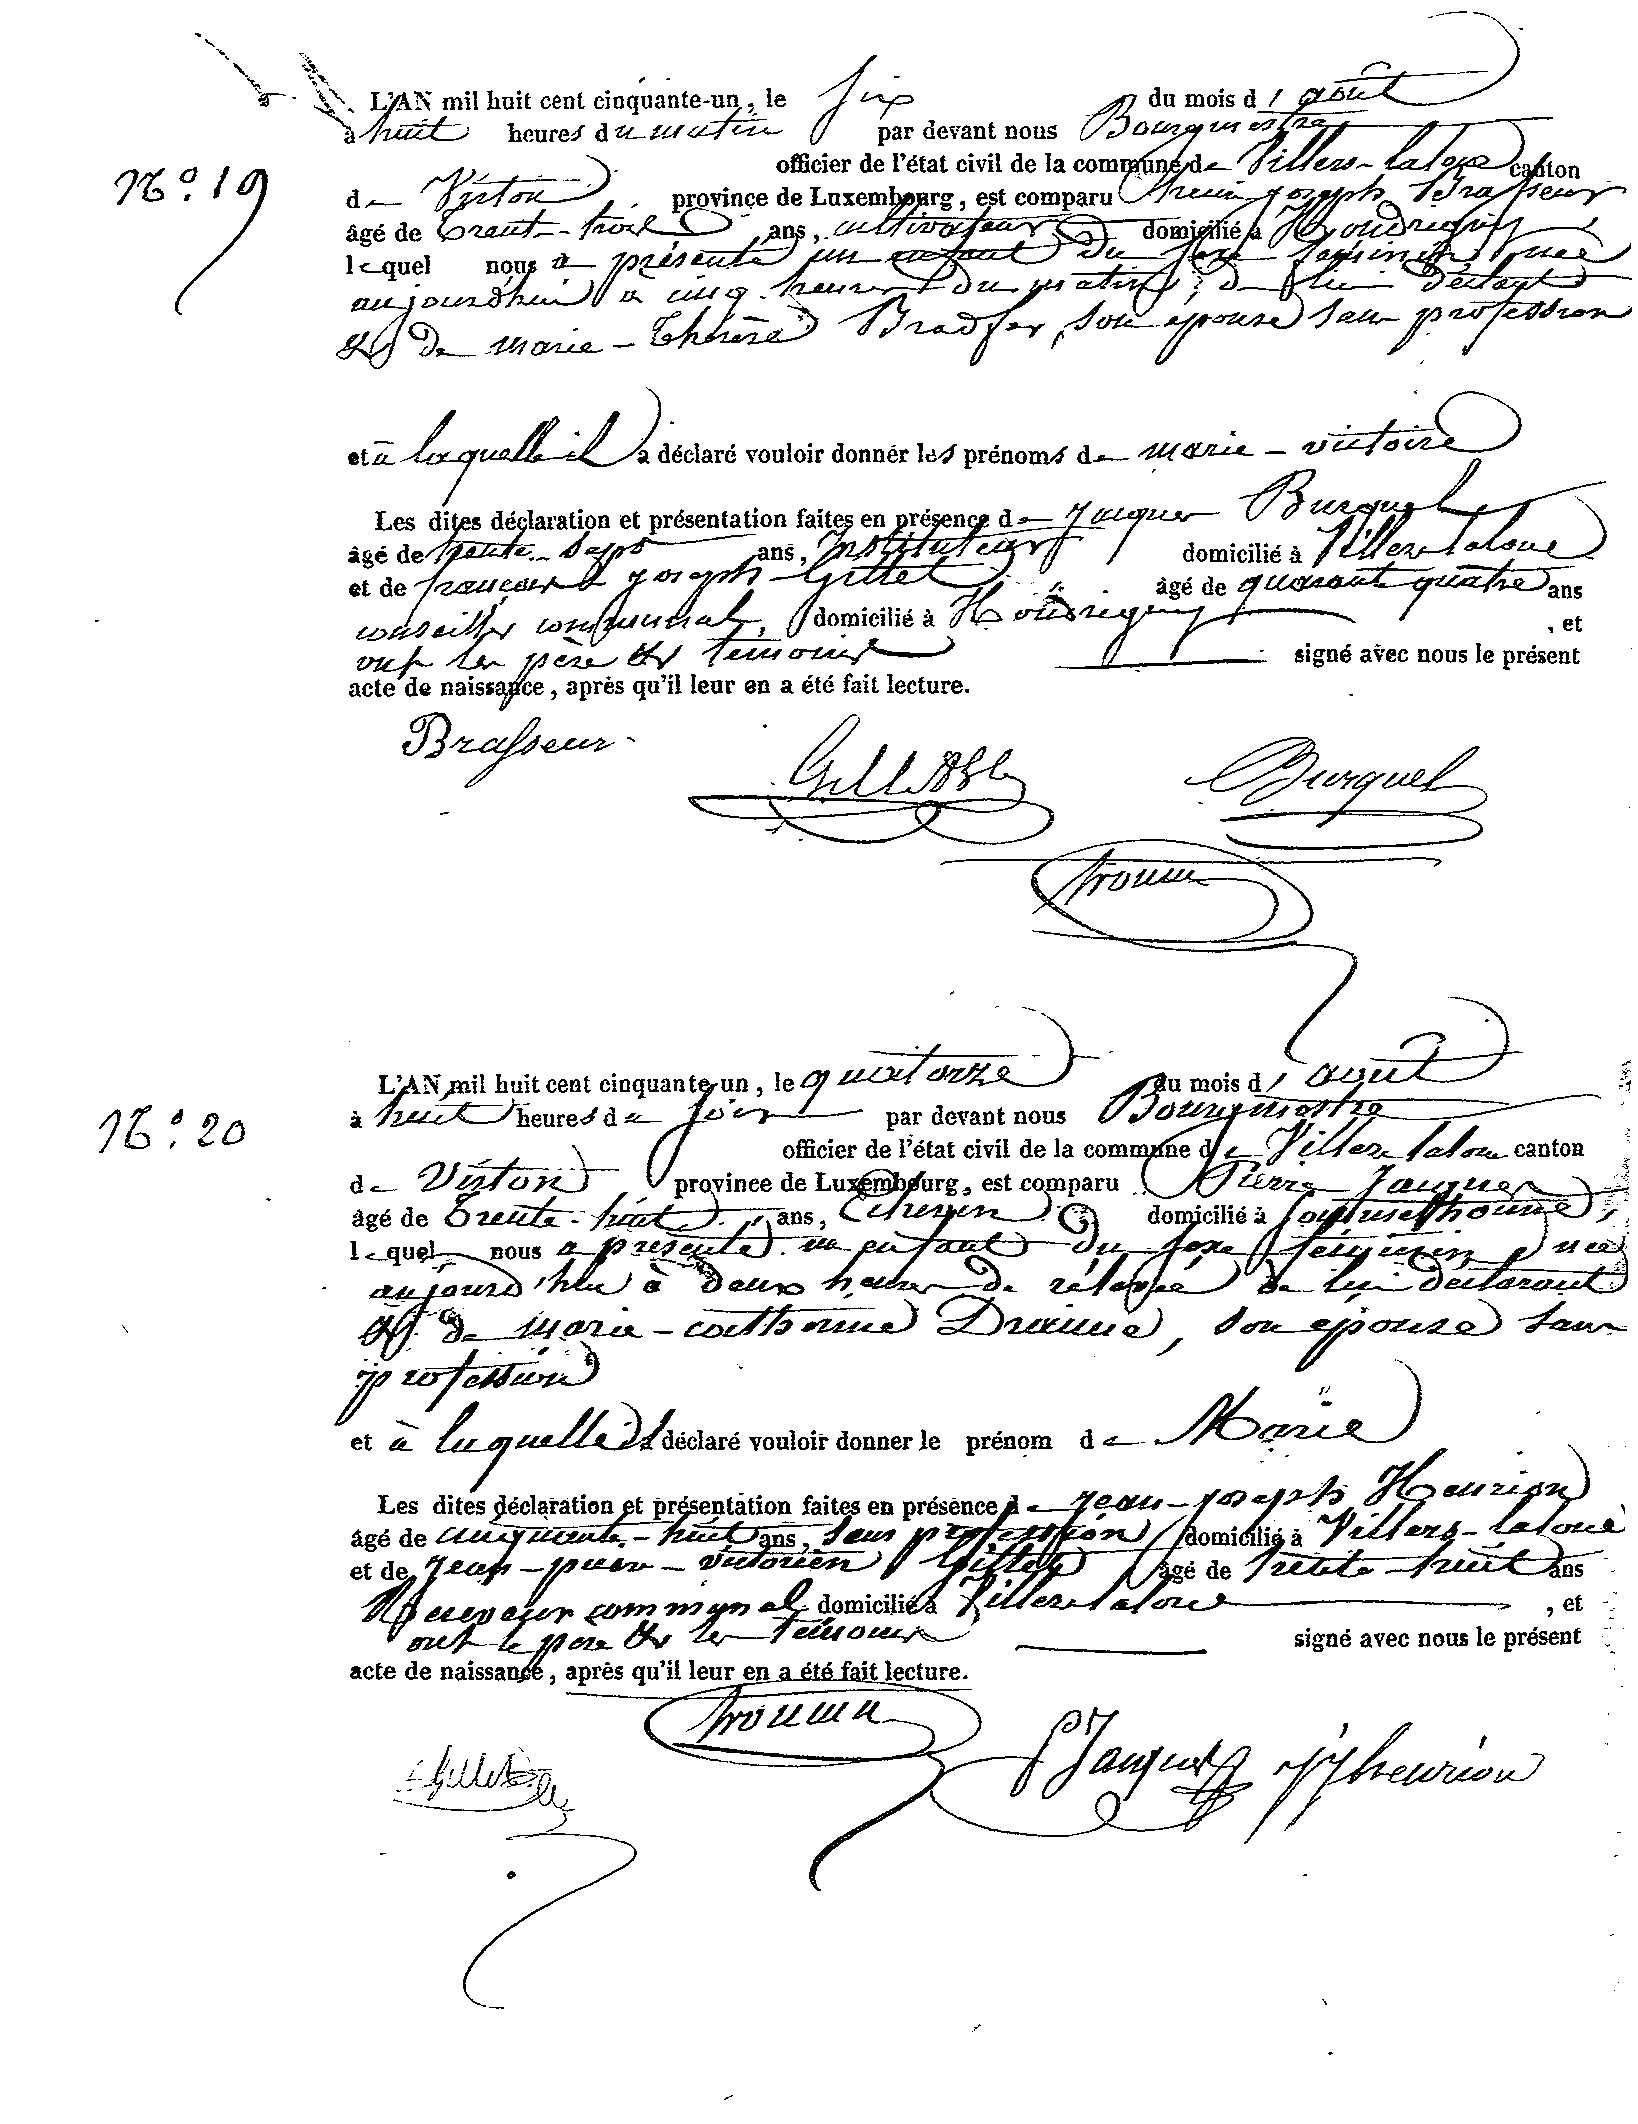 L'AN mil huit cent cinquante-un, le six du mois d'août
à huit heures du matin par devant nous Bourgmestre
officier de l'état civil de la commune de Villers-laloue canton
N° 19
de Virton province de Luxembourg, est comparu henri joseph Brasseur
âgé de trente-trois ans, cultivateur domicilié à Houdrigny,
lequel nous a présenté un enfant du sexe féminin, née
aujourd'hui à cinq heures du matin, de lui déclarant
& de marie-Thérèse Bradfer, son épouse sans profession
et à laquelle il a déclaré vouloir donner les prénoms de marie-victoire
Les dites déclaration et présentation faites en présence de Jacques Burquel
âgé de trente-sept ans, Instituteur domicilié à Villers laloue
et de françois joseph Gillet âgé de quarante quatre ans
conseiller communal, domicilié à Houdrigny, et
ont les père & témoins signé avec nous le présent
acte de naissance, après qu'il leur en a été fait lecture.
Brasseur
Gillet Burquel
L'AN mil huit cent cinquante-un, le quatorze du mois d'août
à huit heures du soir par devant nous Bourgmestre
N° 20
officier de l'état civil de la commune de Villers laloue canton
de Virton province de Luxembourg, est comparu Pierre Jacques
âgé de trente-huit ans, Echevin domicilié à
lequel nous a présenté un enfant du sexe féminin, née
aujourd'hui à deux heures de rélevée de lui déclarant
& de marie-catherine son épouse sans
profession
et à laquelle il a déclaré vouloir donner le prénom de Marie
Les dites déclaration et présentation faites en présence de Jean-joseph Henrion
âgé de cinquante-huit ans, sans profession domicilié à Villers-laloue
et de Jean-pierre-victorien Gillet âgé de trente-huit ans
Receveur communal domicilié à Villers laloue, et
ont le père & les témoins signé avec nous le présent
acte de naissance, après qu'il leur en a été fait lecture.
Gillet PJJacques JJhenrion